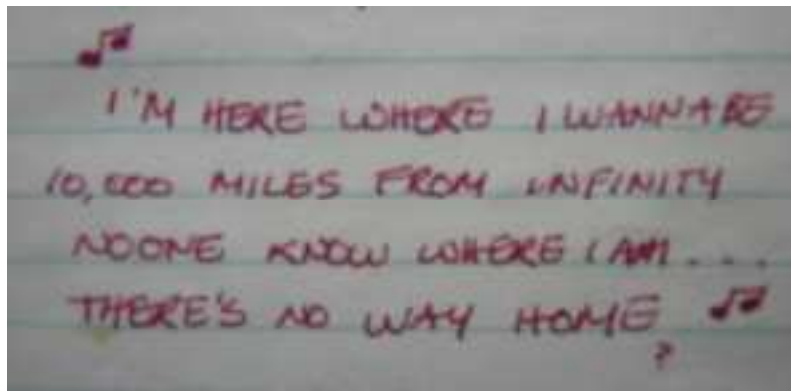 I'M HERE WHERE I WANNA BE
10,000 MILES FROM INFINITY
NOONE KNOW WHERE I AM...
THERE'S NO WAY HOME?